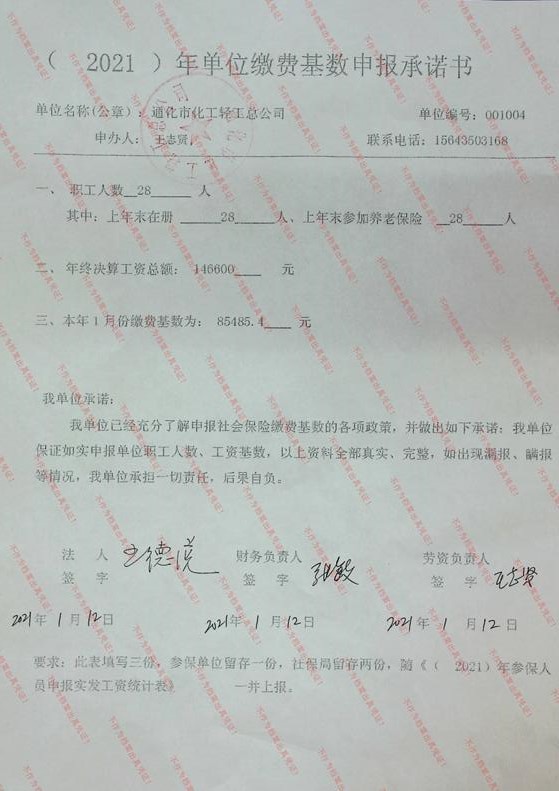 （ 2021 ）年单位缴费基数申报承诺书
单位名称(公章)：通化市化工轻工总公司 单位编号：001004
申办人：王志贤, 联系电话：15643503168
一、 职工人数__28______ 人
其中：上年末在册 ______28______人、上年末参加养老保险 __28____人
二、年终决算工资总额： 146600____ 元
三、本年1月份缴费基数为： 85485.4____ 元
我单位承诺：
我单位已经充分了解申报社会保险缴费基数的各项政策，并做出如下承诺：我单位
保证如实申报单位职工人数、工资基数，以上资料全部真实、完整，如出现漏报、瞒报
等情况，我单位承担一切责任，后果自负。
法 人 王德 财务负责人 劳资负责人
签 字 签 字 张敏 签 字 王志贤
2021年 1 月 12日 2021年 1 月 12日 2021年 1 月 12日
要求：此表填写三份，参保单位留存一份，社保局留存两份，随《（ 2021）年参保人
员申报实发工资统计表》 一并上报。